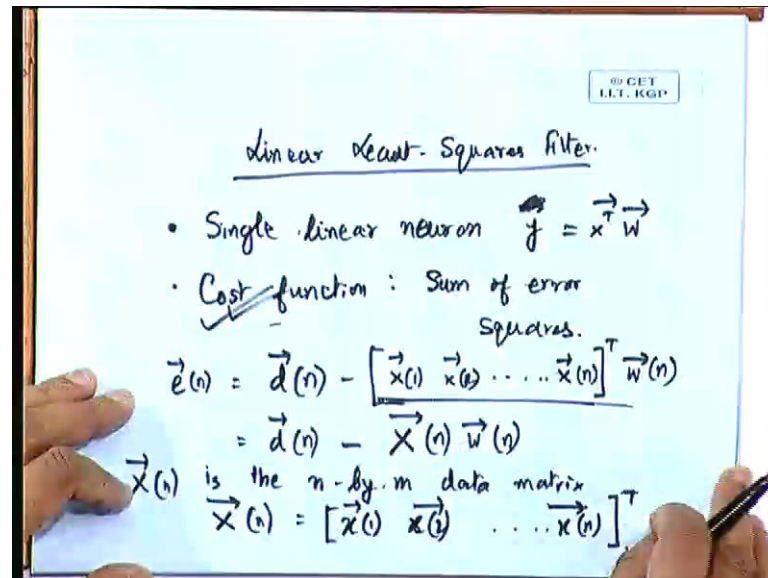 © CET
I.I.T. KGP
Linear Least-Squares Filter.
• Single linear neuron y⃗ = x⃗ᵀ w⃗
• Cost function : Sum of error
squares.
e⃗(n) = d⃗(n) - [x⃗(1) x⃗(2) ..... x⃗(n)]ᵀ w⃗(n)
= d⃗(n) - X⃗(n) w⃗(n)
X⃗(n) is the n-by-m data matrix
X⃗(n) = [x⃗(1) x⃗(2) .... x⃗(n)]ᵀ